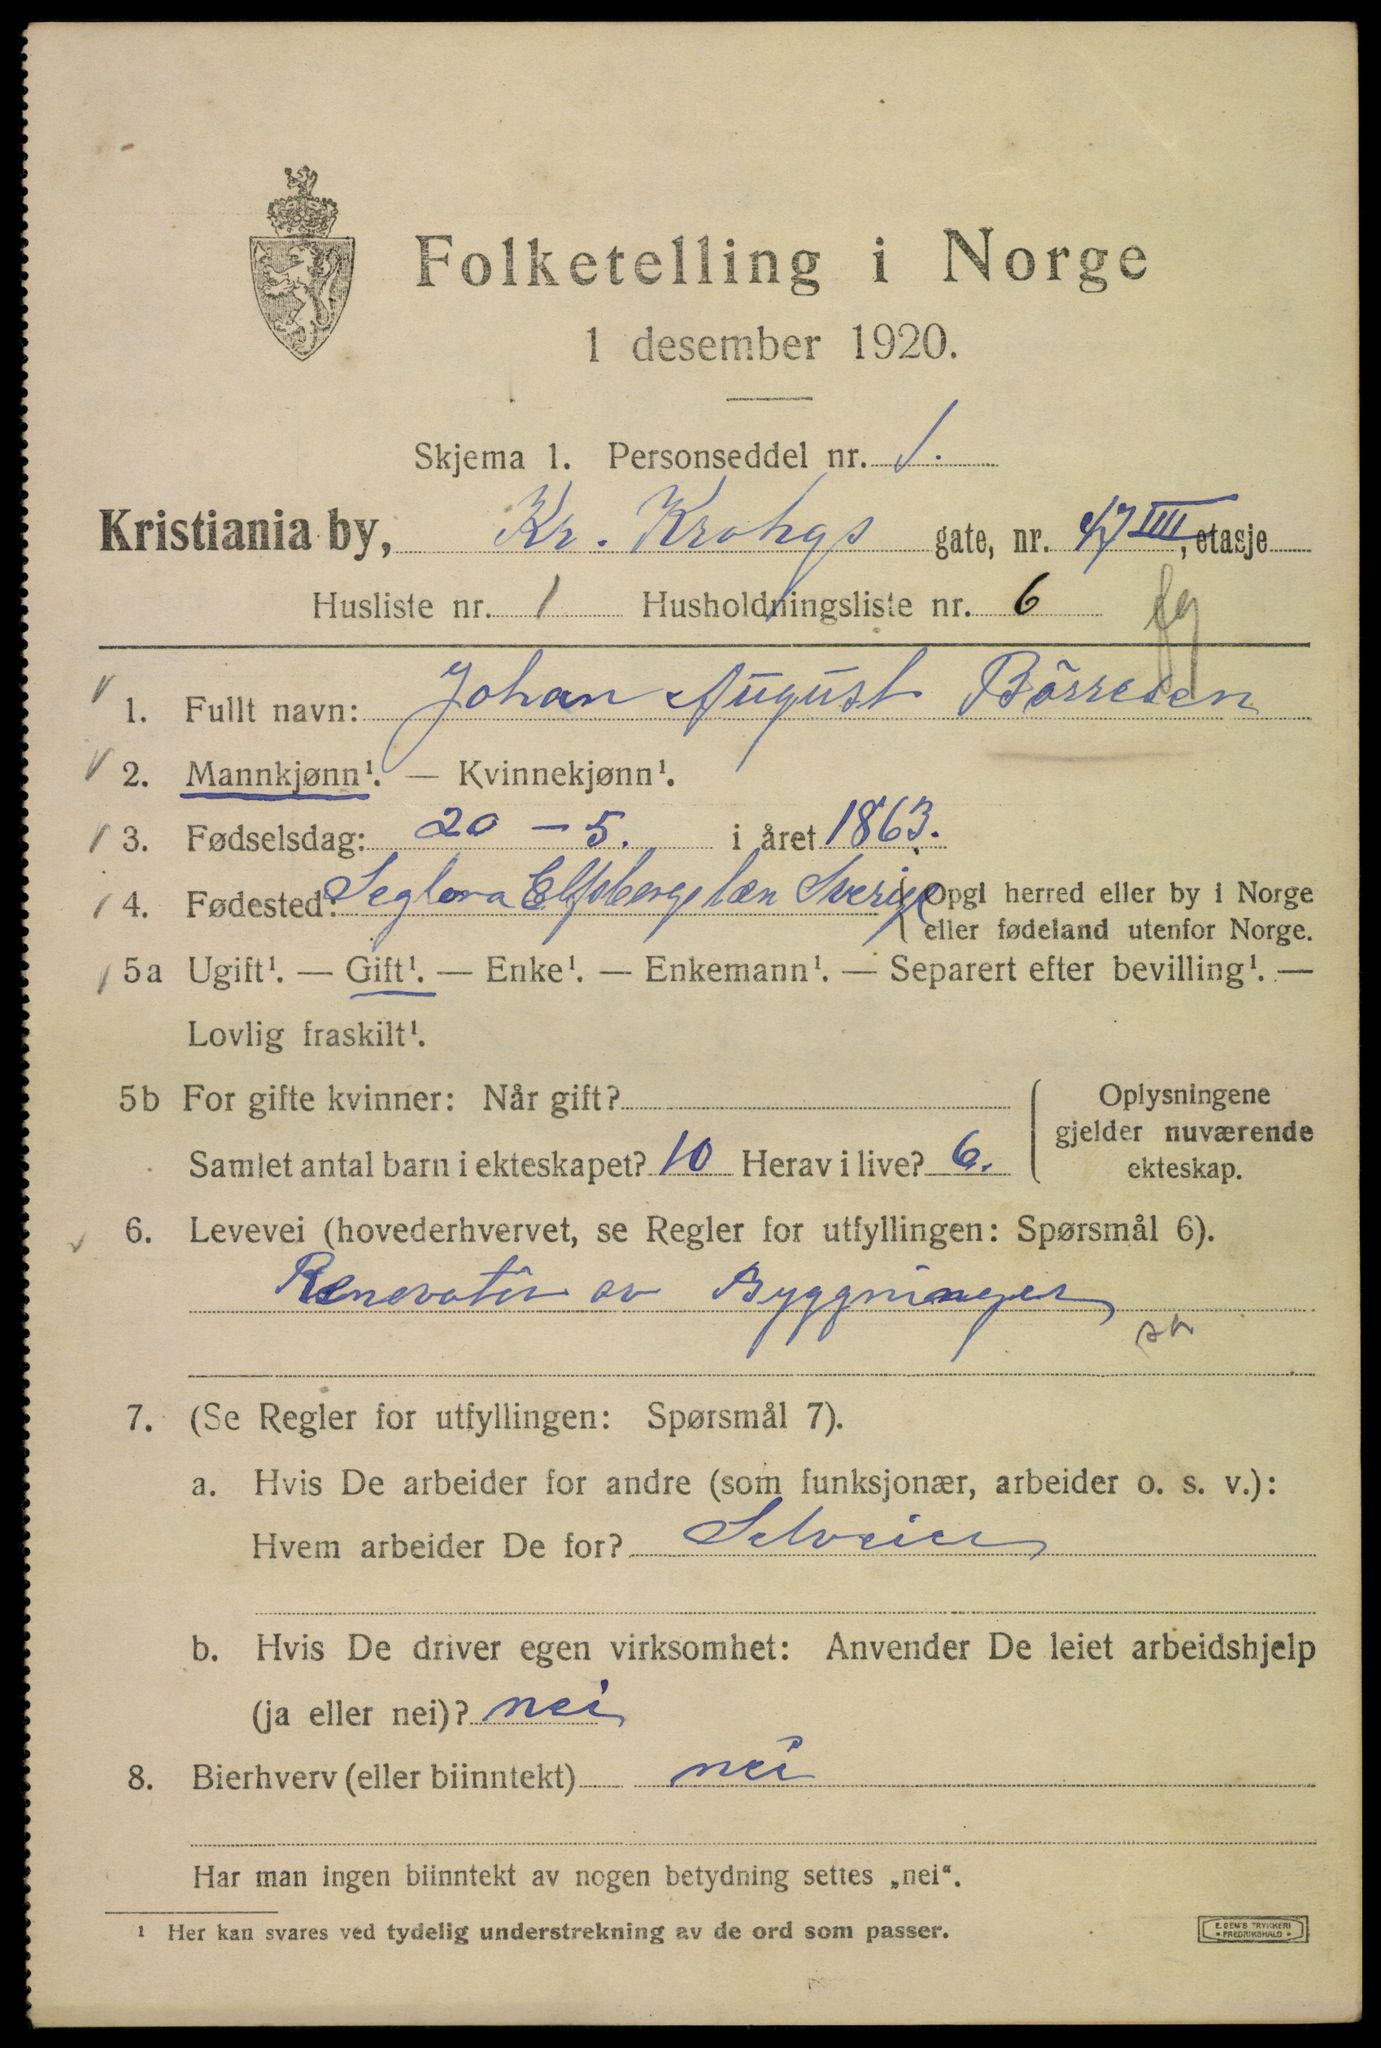 Folketelling i Norge
1 desember 1920.
Skjema 1. Personseddel nr. 1.
Kristiania by, Kr. Krohgs gate, nr. 47 IIII, etasje
Husliste nr. 1 Husholdningsliste nr. 6
1. Fullt navn: Johan August Börresen
2. Mannkjønn¹. — Kvinnekjønn¹.
3. Fødselsdag: 20 – 5. i året 1863.
4. Fødested: Seglora Elfsborgs læn Sverige { Opgi herred eller by i Norge
eller fødeland utenfor Norge.
5a Ugift¹. — Gift¹. — Enke¹. — Enkemann¹. — Separert efter bevilling¹. —
Lovlig fraskilt¹.
5b For gifte kvinner: Når gift?
Samlet antal barn i ekteskapet? 10 Herav i live? 6.
Oplysningene
gjelder nuværende
ekteskap.
6. Levevei (hovederhvervet, se Regler for utfyllingen: Spørsmål 6).
Renovatör av Byggninger
7. (Se Regler for utfyllingen: Spørsmål 7).
a. Hvis De arbeider for andre (som funksjonær, arbeider o. s. v.):
Hvem arbeider De for? Selveier
b. Hvis De driver egen virksomhet: Anvender De leiet arbeidshjelp
(ja eller nei)? nei
8. Bierhverv (eller biinntekt) nei
Har man ingen biinntekt av nogen betydning settes „nei“.
¹ Her kan svares ved tydelig understrekning av de ord som passer.
E. SEM'S TRYKKERI
• FREDRIKSHALD •